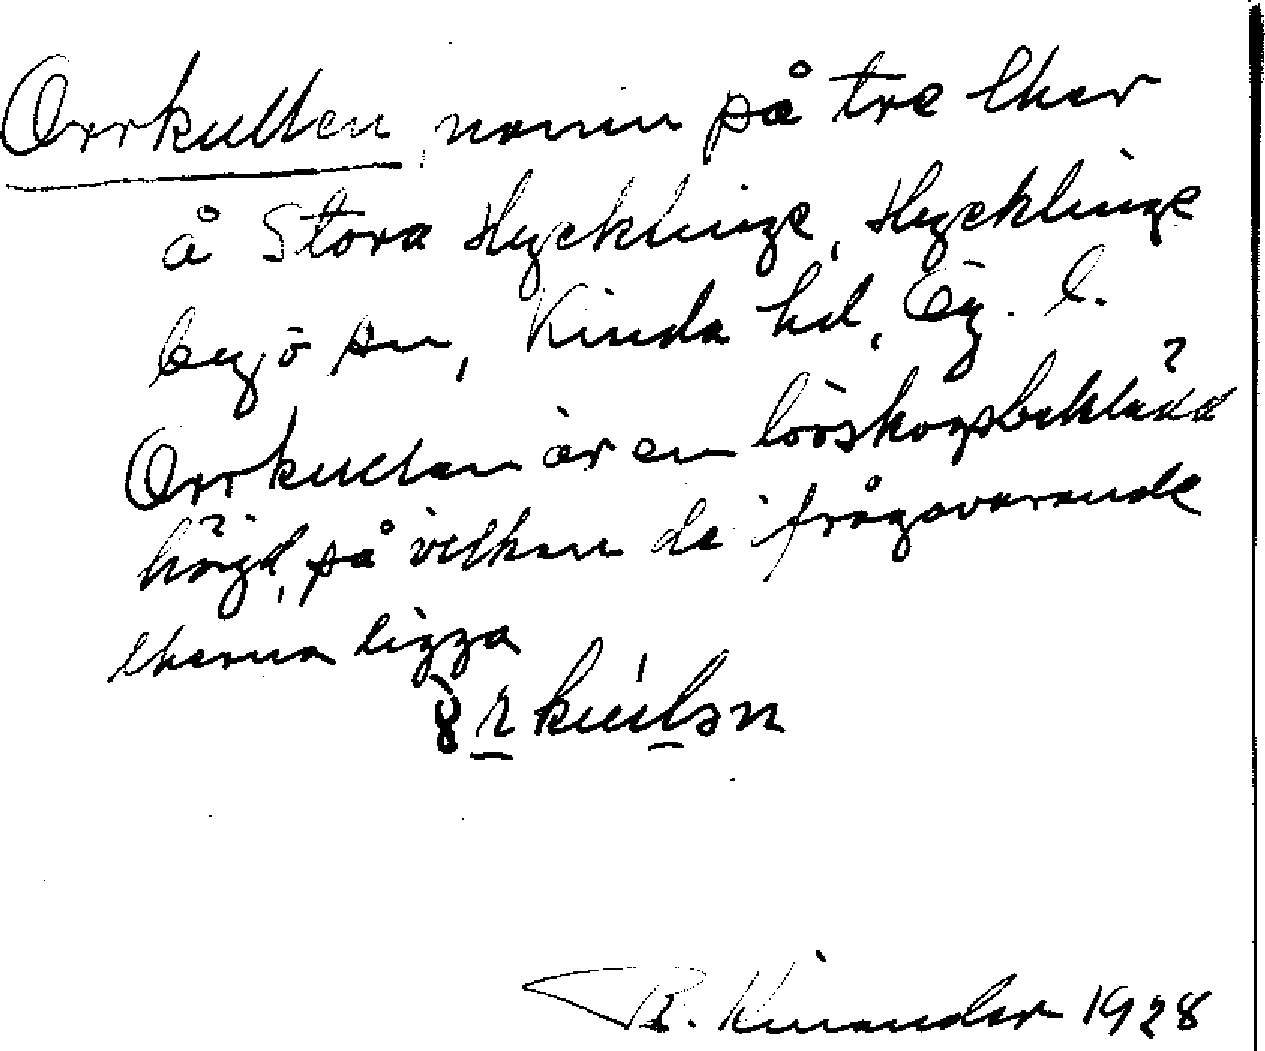 Orrkullen, namn på tre lher
å Stora Hycklinge, Hycklinge
by, o sn, Kinda hd, Ög. l.
Orrkullen är en lövskogsbeklädd
höjd, på vilken de ifrågavarande
lherna ligga
R. Kinander 1928